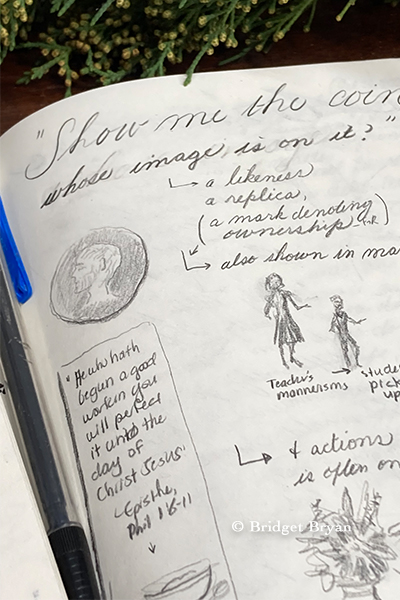 "Show me the coin
whose image is on it?"
a likeness
a replica,
(a mark denoting
ownership)
also shown in ma
Teacher's
mannerisms
stude
pick
up
& actions
is often on
"He who hath
begun a good
work in you
will perfect
it unto the
day of
Christ Jesus."
Epistle,
Phil 1:6-11
© Bridget Bryan